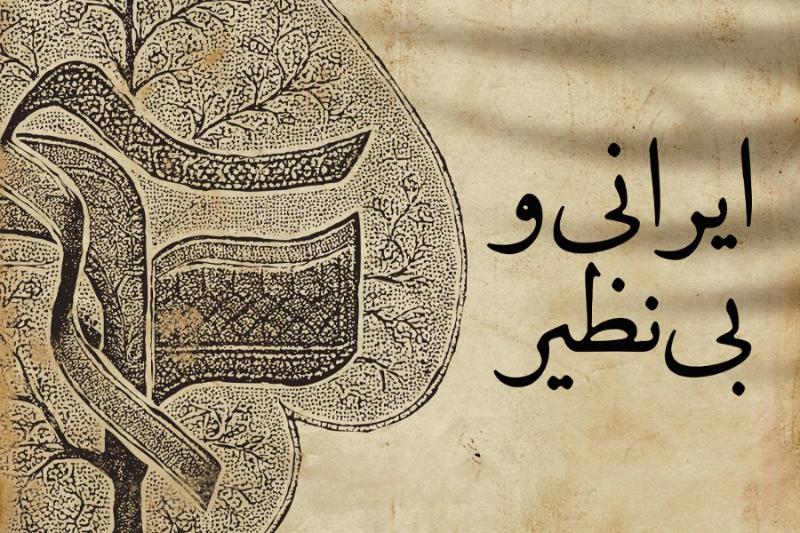 ایرانی و
بی‌نظیر